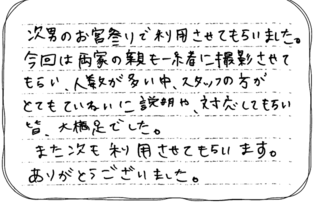 次男のお宮祭りで利用させてもらいました。
今回は両家の親も一緒に撮影させて
もらい、人数が多い中、スタッフの方が
とてもていねいに説明や、対応してもらい
皆、大満足でした。
また次も利用させてもらいます。
ありがとうございました。